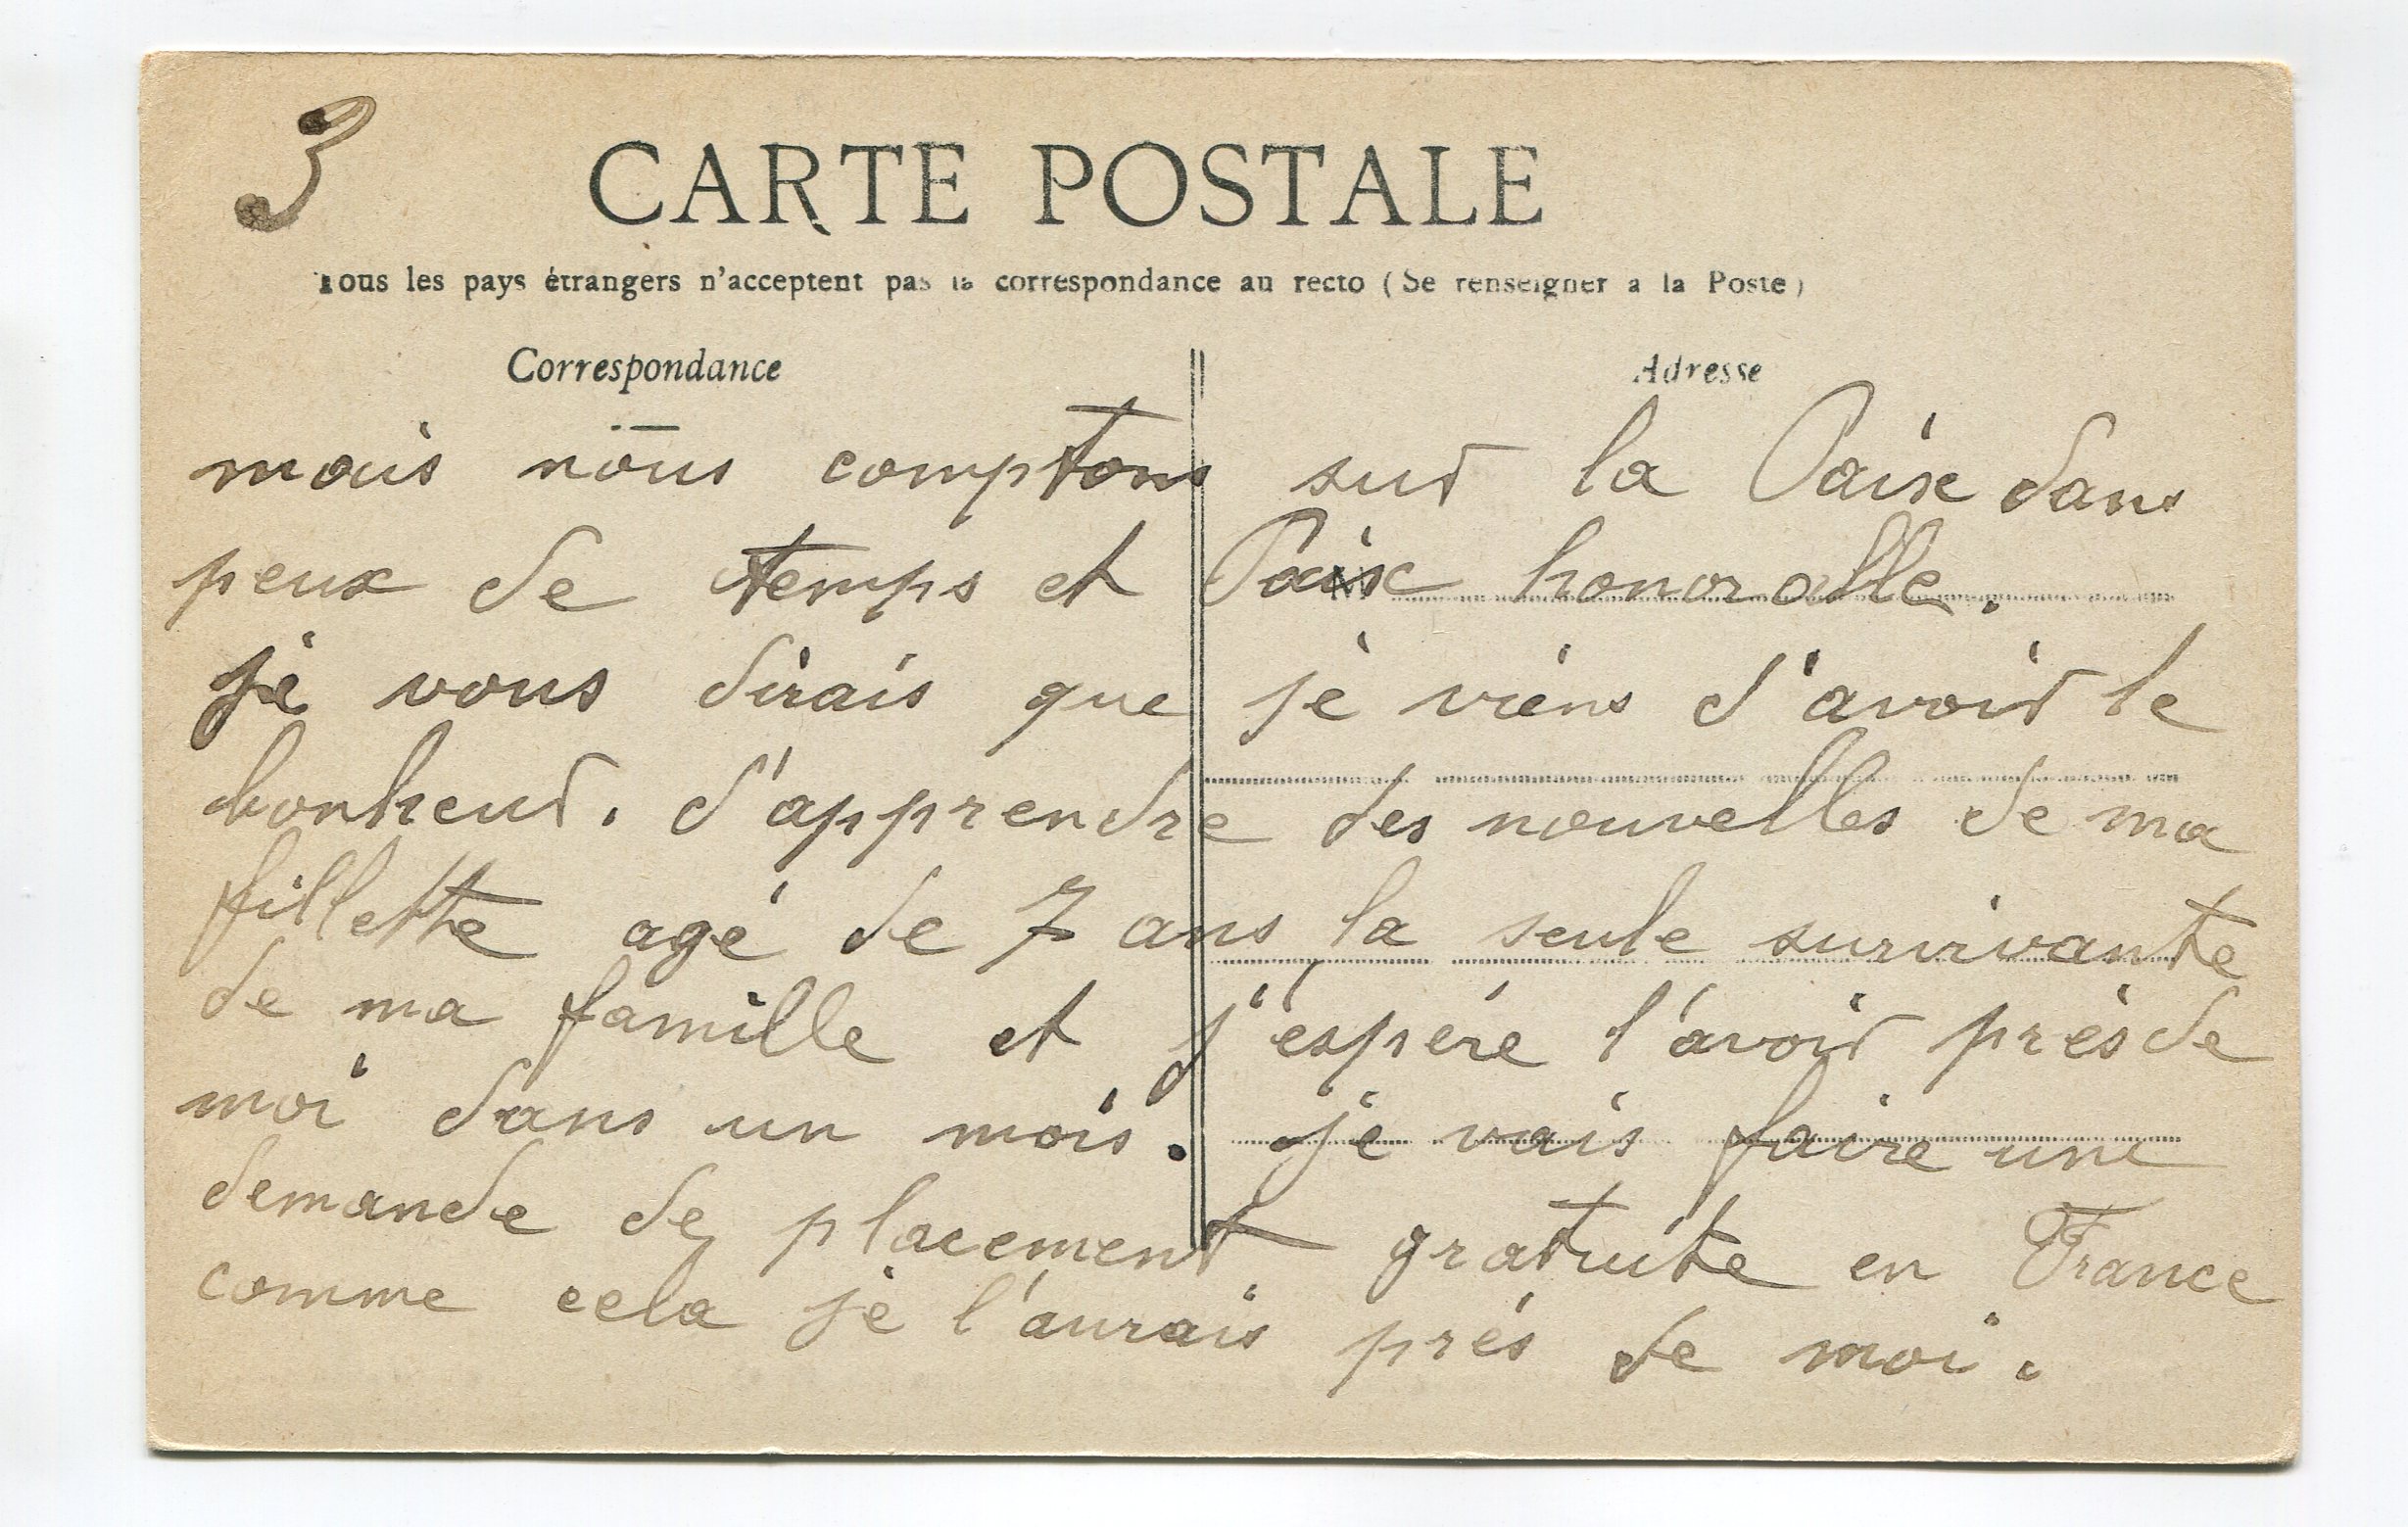 3
CARTE POSTALE
Tous les pays étrangers n'acceptent pas la correspondance au recto (Se renseigner a la Poste)
Correspondance
Adresse
mais nous comptons sur la Paix dans
peux de temps et Paix honoralle.
je vous dirais que je viens d'avoir le
bonheur. d'apprendre des nouvelles de ma
fillette agé de 7 ans la seule survivante
de ma famille et j'espére l'avoir près de
moi dans un mois. je vais faire une
demande de placement gratuite en France
comme cela je l'aurais prés de moi.